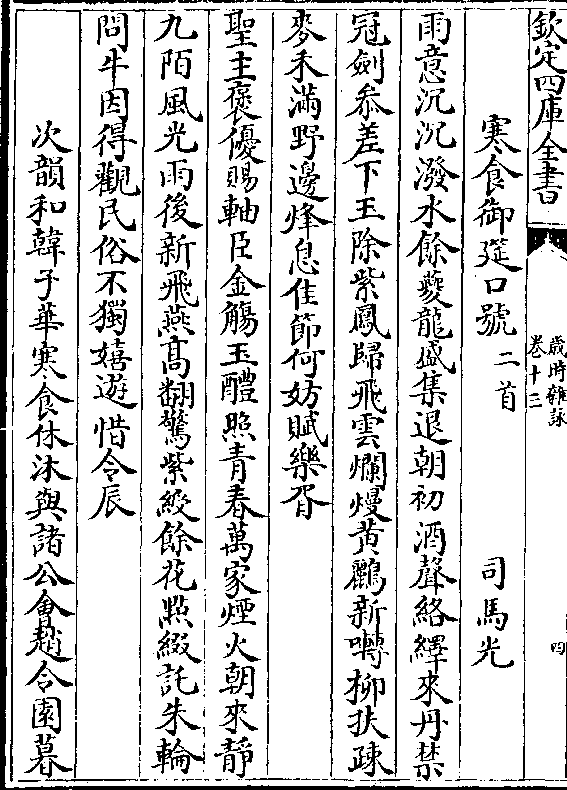 欽定四庫全書
歲時雜詠
卷十三
四
寒食御筵口號二首　司馬光
雨意沉沉潑水餘夔龍盛集退朝初酒聲絡繹來丹禁
冠劍叅差下玉除紫鳳歸飛雲爛熳黄鸝新囀柳扶疎
麥禾滿野邊烽息佳節何妨賦樂胥
聖主褒優賜軸臣金觴玉醴照青春萬家煙火朝來靜
九陌風光雨後新飛燕髙翻驚紫綬餘花㸃綴託朱輪
問牛因得觀民俗不獨嬉遊惜令辰
次韻和韓子華寒食休沐與諸公會趙令園暮